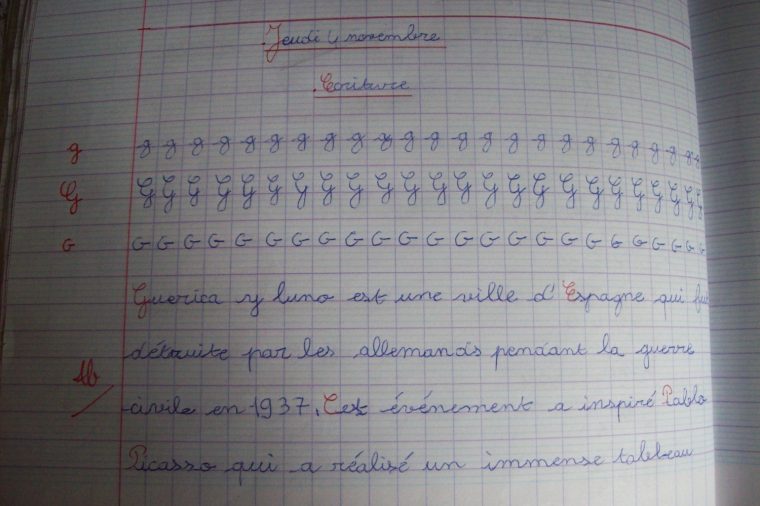 Jeudi 4 novembre
Ecriture
g g g g g g g g g g g g g g g g g g g g g g g
G G G G G G G G G G G G G G G G G G G G G G G
G G G G G G G G G G G G G G G G G G G G G G G
Guerica y luno est une ville d'Espagne qui fu
détruite par les allemands pendant la guerre
civile en 1937. Cet événement a inspiré Pablo
Picasso qui a réalisé un immense tableau